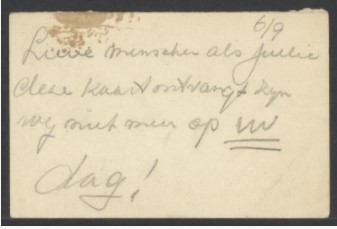 6/9
Lieve menschen als jullie
deze kaart ontvangt zyn
wy niet meer op
dag!